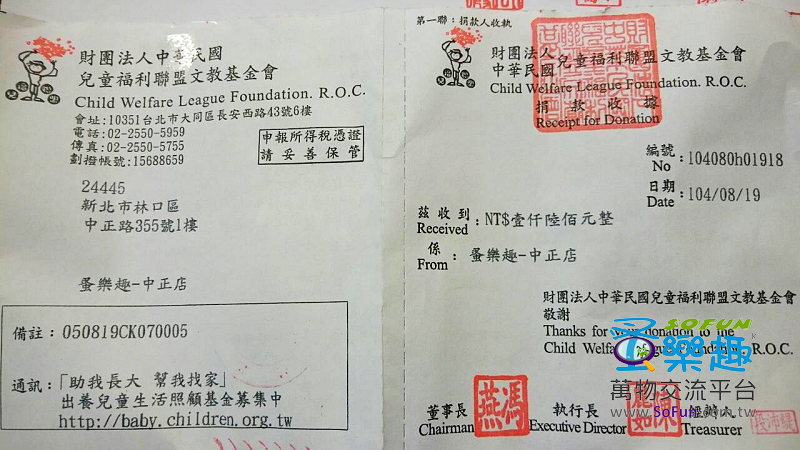 財團法人中華民國
兒童福利聯盟文教基金會
Child Welfare League Foundation. R.O.C.
會址:10351台北市大同區長安西路43號6樓
電話:02-2550-5959
傳真:02-2550-5755
劃撥帳號:15688659
申報所得稅憑證
請妥善保管
24445
新北市林口區
中正路355號1樓
蛋樂趣-中正店
備註：050819CK070005
通訊：「助我長大 幫我找家」
出養兒童生活照顧基金募集中
http://baby.children.org.tw
第一聯：捐款人收執
財團法人
中華民國
兒童福利聯盟文教基金會
Child Welfare League Foundation. R.O.C.
捐款收據
Receipt for Donation
編號
No
：104080h01918
日期
Date
：104/08/19
茲收到
Received
：NT$壹仟陸佰元整
係
From
：蛋樂趣-中正店
財團法人中華民國兒童福利聯盟文教基金會
敬謝
Thanks for your donation to the
Child Welfare League Foundation, R.O.C.
SOFUN
蛋樂趣
萬物交流平台
www.SoFun.com.tw
董事長
Chairman
馮
燕
執行長
Executive Director
陳
如
經辦人
Treasurer